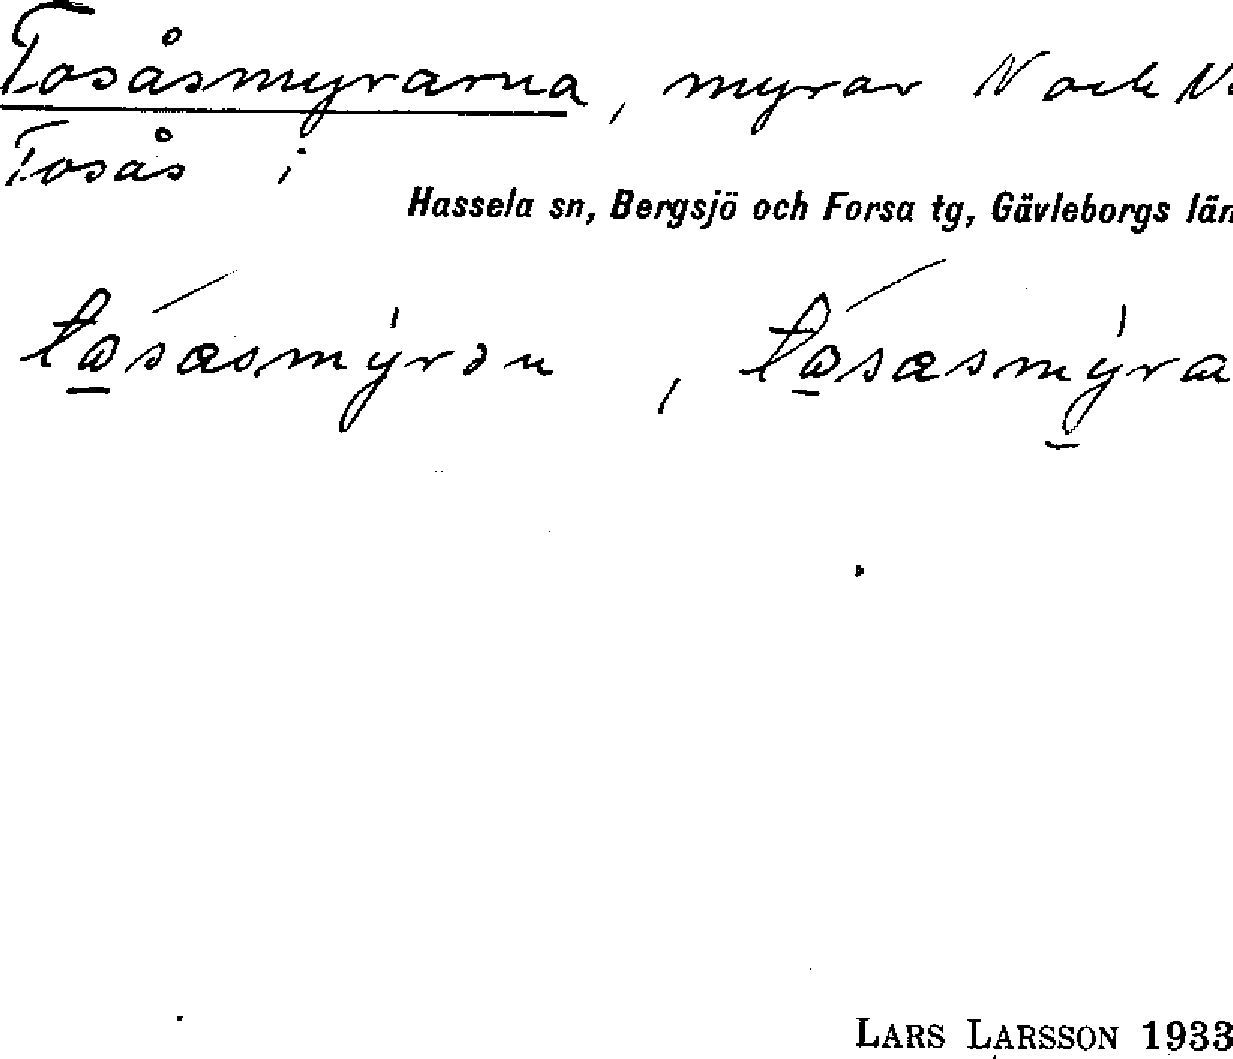 Tosåsmyrarna, myrar N och
Tosås i
Hassela sn, Bergsjö och Forsa tg, Gävleborgs län
LARS LARSSON 1933